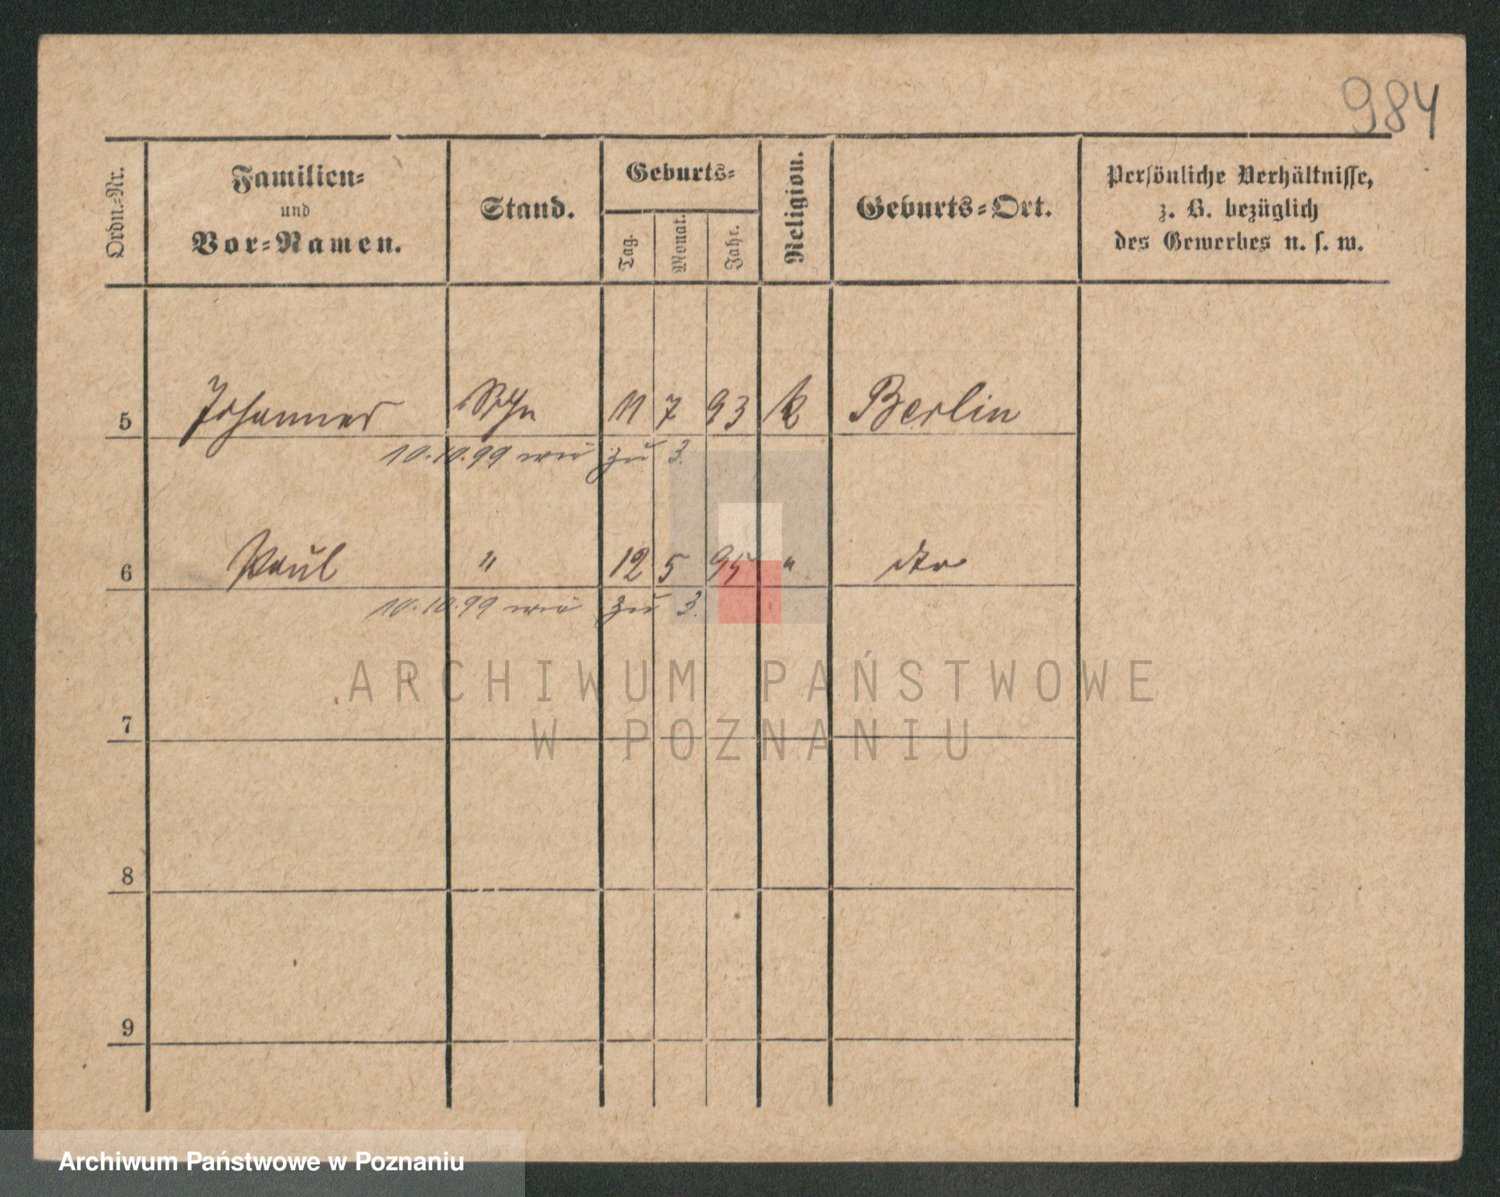 984
Ordn.-Nr.
Familien-
und
Vor-Namen.
Stand.
Geburts-
Tag.
Monat.
Jahr.
Religion.
Geburts-Ort.
Persönliche Verhältnisse,
z. B. bezüglich
des Gewerbes u. s. w.
5 Johannes Sohn 11 7 93 k Berlin
10.10.99 wie zu 3.
6 Paul " 12 5 95 " dto
10.10.99 wie zu 3.
7
8
9
ARCHIWUM PAŃSTWOWE
W POZNANIU
Archiwum Państwowe w Poznaniu